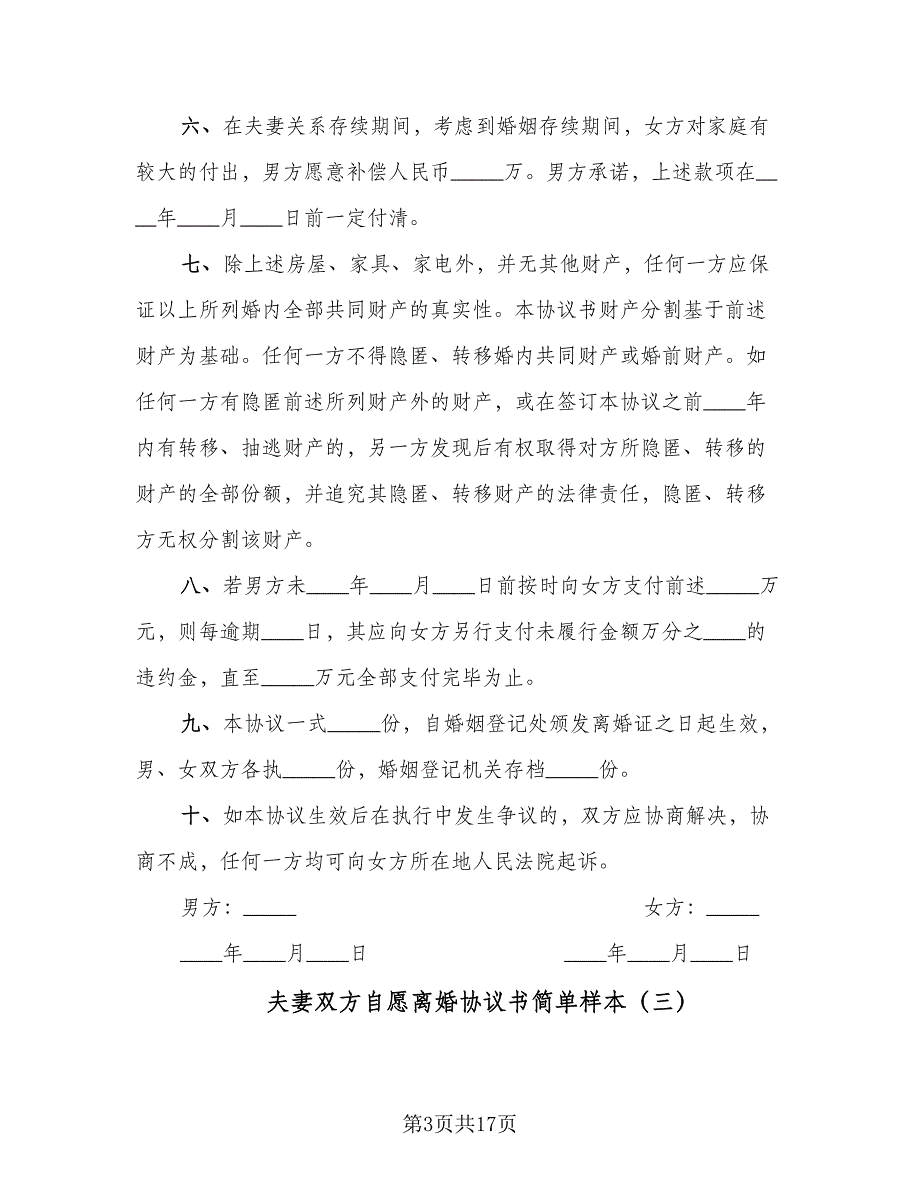 六、在夫妻关系存续期间，考虑到婚姻存续期间，女方对家庭有
较大的付出，男方愿意补偿人民币_____万。男方承诺，上述款项在__
__年____月____日前一定付清。
七、除上述房屋、家具、家电外，并无其他财产，任何一方应保
证以上所列婚内全部共同财产的真实性。本协议书财产分割基于前述
财产为基础。任何一方不得隐匿、转移婚内共同财产或婚前财产。如
任何一方有隐匿前述所列财产外的财产，或在签订本协议之前____年
内有转移、抽逃财产的，另一方发现后有权取得对方所隐匿、转移的
财产的全部份额，并追究其隐匿、转移财产的法律责任，隐匿、转移
方无权分割该财产。
八、若男方未____年____月____日前按时向女方支付前述_____万
元，则每逾期____日，其应向女方另行支付未履行金额万分之____的
违约金，直至_____万元全部支付完毕为止。
九、本协议一式_____份，自婚姻登记处颁发离婚证之日起生效，
男、女双方各执_____份，婚姻登记机关存档_____份。
十、如本协议生效后在执行中发生争议的，双方应协商解决，协
商不成，任何一方均可向女方所在地人民法院起诉。
男方：_____ 女方：_____
____年____月____日 ____年____月____日
夫妻双方自愿离婚协议书简单样本（三）
第3页共17页